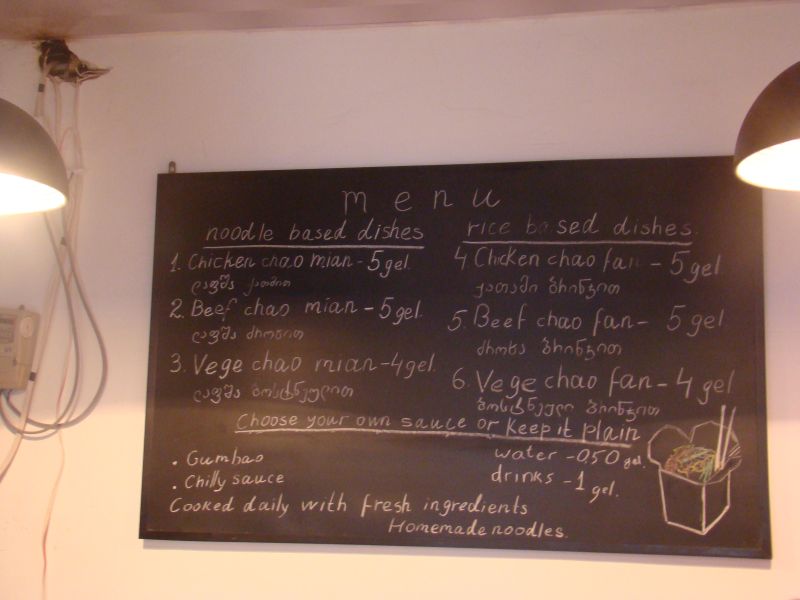 menu
noodle based dishes
1. Chicken chao mian - 5 gel.
ლაფშა ქათმით
2. Beef chao mian - 5 gel.
ლაფშა ძროხით
3. Vege chao mian - 4 gel.
ლაფშა ბოსტნეულით
rice based dishes
4. Chicken chao fan - 5 gel
ქათამი ბრინჯით
5. Beef chao fan - 5 gel
ძროხა ბრინჯით
6. Vege chao fan - 4 gel
ბოსტნეული ბრინჯით
Choose your own sauce or keep it plain
. Gumbao
. Chilly sauce
water - 0,50 gel.
drinks - 1 gel.
Cooked daily with fresh ingredients
Homemade noodles.